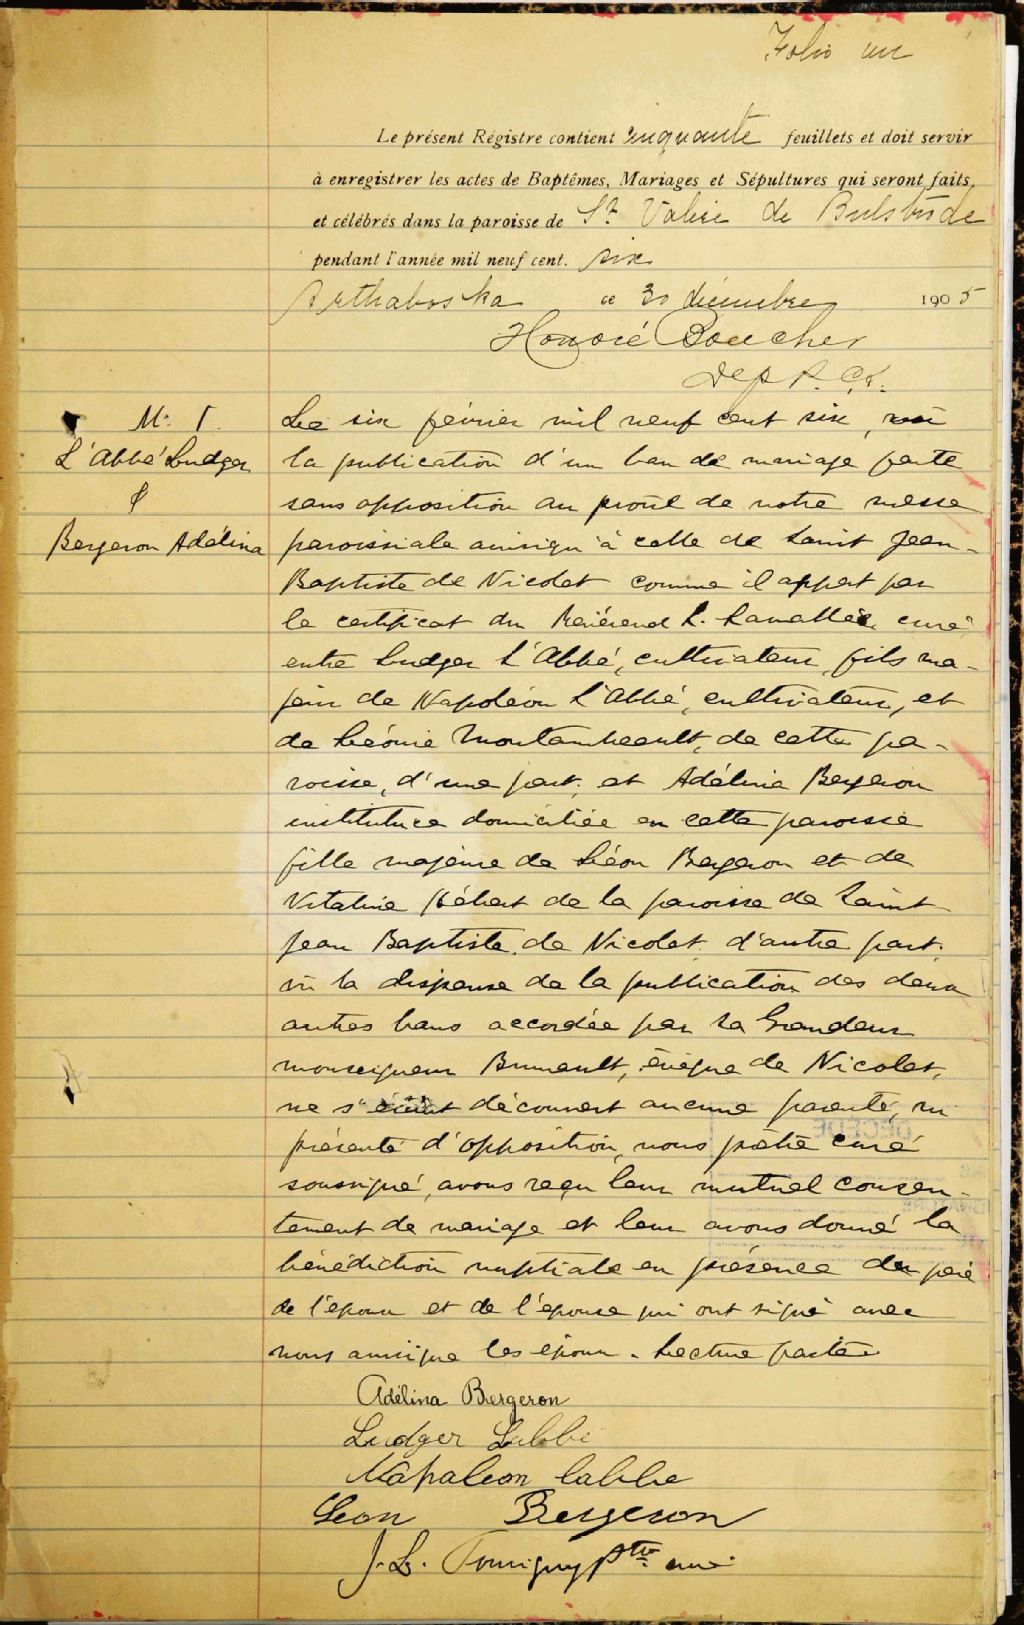 Folio un
Le présent Régistre contient cinquante feuillets et doit servir
à enregistrer les actes de Baptêmes, Mariages et Sépultures qui seront faits
et célébrés dans la paroisse de St Valère de Bulstrode
pendant l'année mil neuf cent. six
Arthabaska ce 30 décembre 1905
Honoré Boucher
Dep P. C. S.
M. 1.
L'Abbé Ludger
&
Bergeron Adélina
Le six février mil neuf cent six, vu
la publication d'un ban de mariage faite
sans opposition au prône de notre messe
paroissiale ainsiqu'à celle de Saint Jean-
Baptiste de Nicolet comme il appert par
le certificat du Révérend L. Lavallée curé
entre Ludger L'Abbé, cultivateur, fils ma-
jeur de Napoléon L'Abbé, cultivateur, et
de Léonie Montambeault, de cette pa-
roisse, d'une part; et Adélina Bergeron
institutrice domiciliée en cette paroisse
fille majeure de Léon Bergeron et de
Vitaline Hébert de la paroisse de Saint
Jean Baptiste de Nicolet, d'autre part;
vu la dispense de la publication des deux
autres bans accordée par Sa Grandeur
monseigneur Brunault, évêque de Nicolet,
ne s'étant découvert aucune parenté, ni
présenté d'opposition, nous prêtre curé
soussigné, avons reçu leur mutuel consen-
tement de mariage et leur avons donné la
bénédiction nuptiale en présence du père
de l'époux et de l'épouse qui ont signé avec
nous ainsique les époux. Lecture faite
Adélina Bergeron
Ludger Labbé
Napaleon labbe
Leon Bergeron
J. L. Tourigny Ptre curé
DÉCÉDÉ